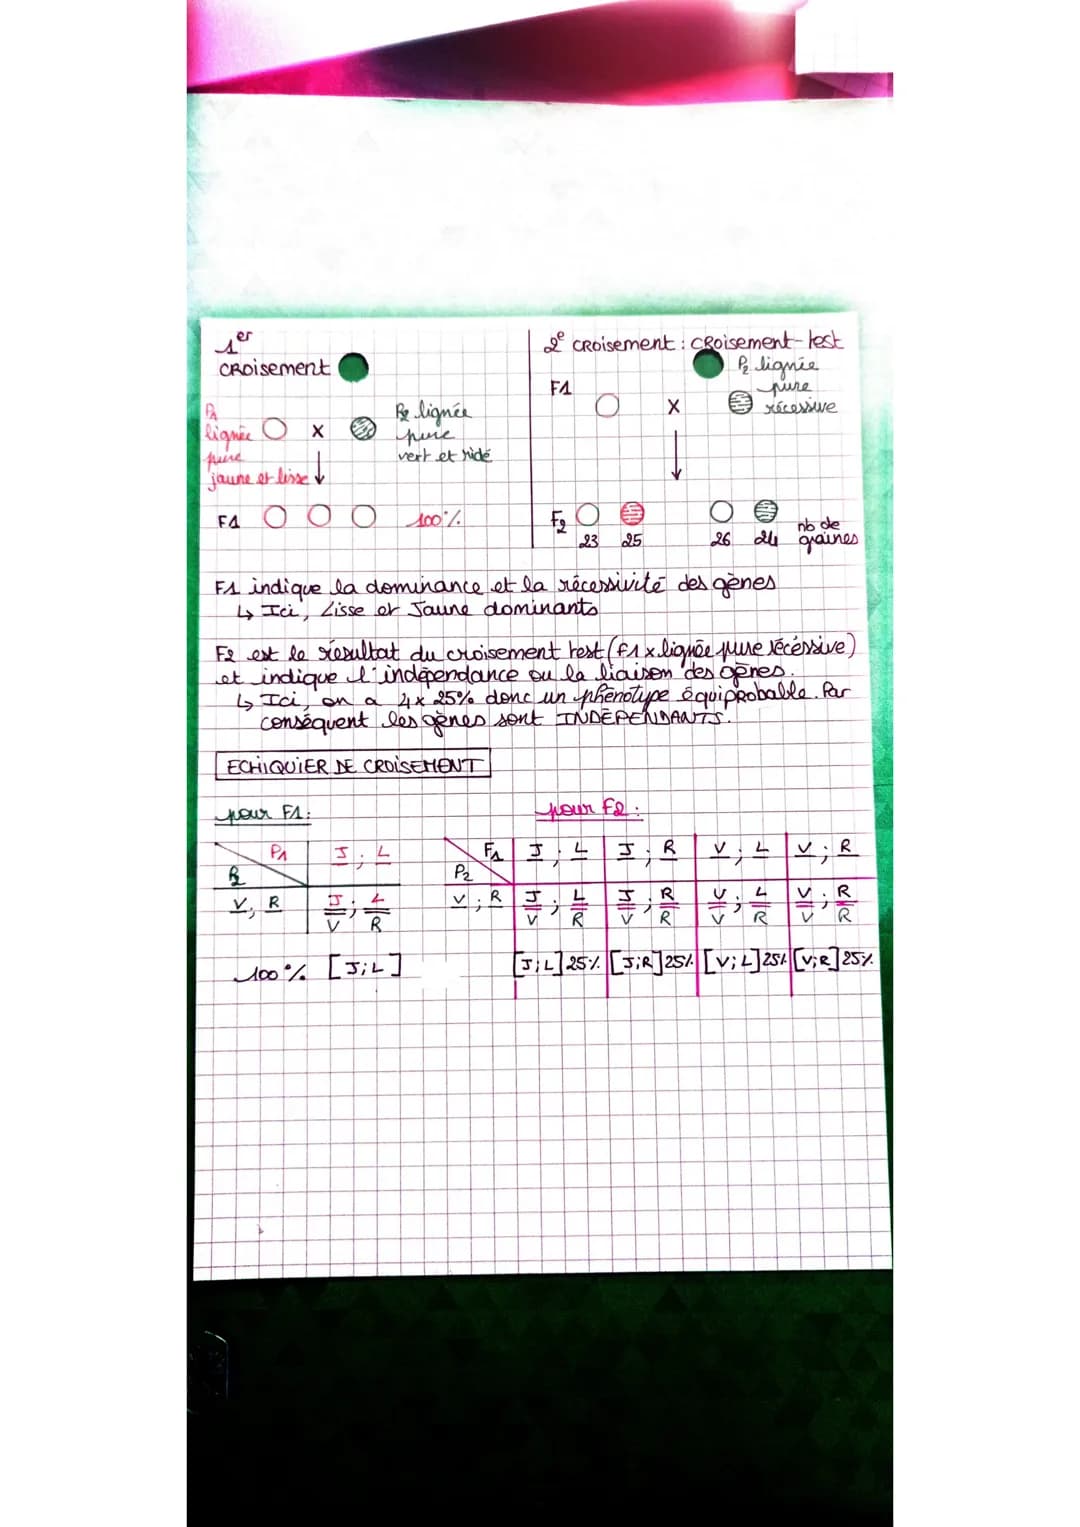 1er
CROISEMENT
P1
lignée
pure
jaune et lisse
X
P2 lignée
pure
vert et ridé
F1
100%
2e CROISEMENT : CROISEMENT-test
F1
X
P2 lignée
pure
récessive
F2
23 25 26 24 nb de
graines
F1 indique la dominance et la récessivité des gènes
↳ Ici, Lisse et Jaune dominants
F2 est le résultat du croisement test (F1 x lignée pure récéssive)
et indique l'indépendance ou la liaison des gènes.
↳ Ici, on a 4x 25% donc un phénotype équiprobable. Par
conséquent les gènes sont INDÉPENDANTS.
ECHIQUIER DE CROISEMENT
pour F1 :
P1 J ; L
P2
V ; R J ; L
V R
100% [J;L]
pour F2 :
F1 J ; L J ; R V ; L V ; R
P2
V ; R J ; L J ; R V ; L V ; R
V R V R V R V R
[J;L] 25% [J;R] 25% [V;L] 25% [V;R] 25%